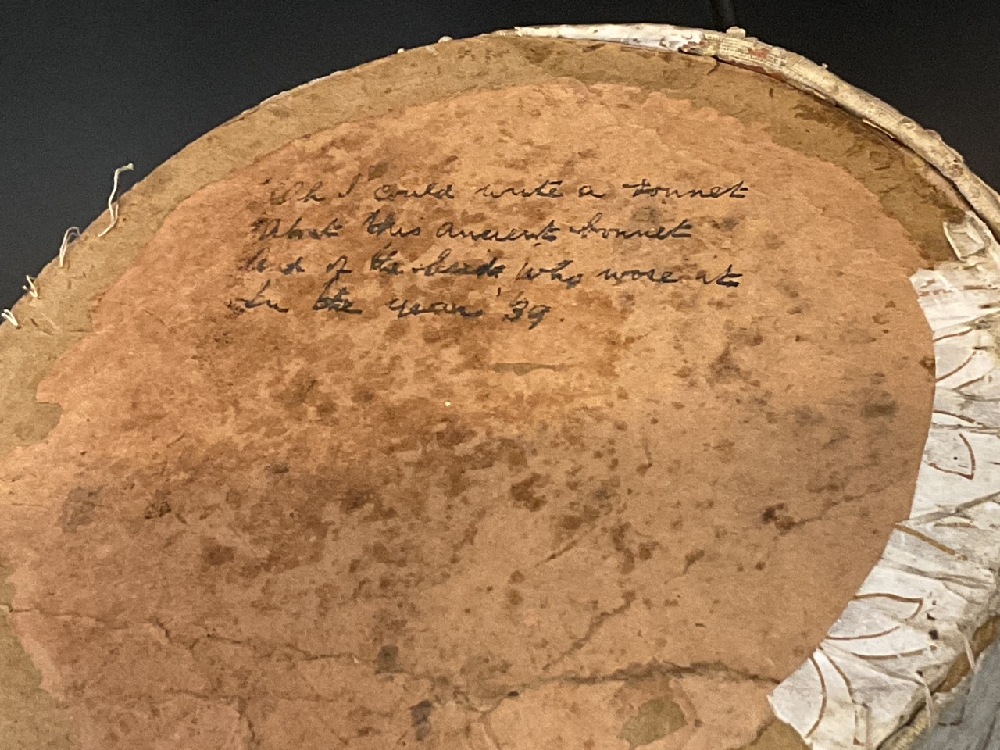 "Oh I could write a sonnet
About this ancient bonnet
And of the bride who wore it
In the year '39.